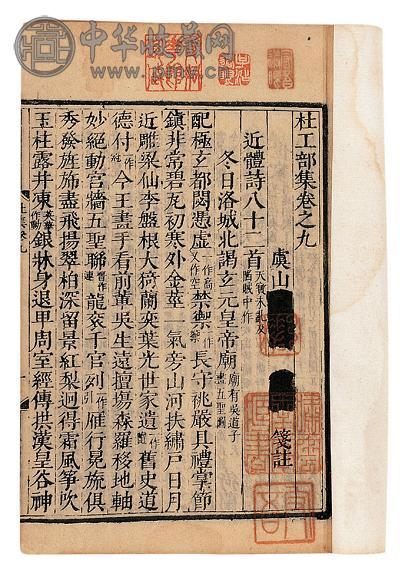 中华收藏网
杜工部集卷之九
虞山 箋註
近體詩八十二首 天寶未亂及陷賊中作
冬日洛城北謁玄元皇帝廟 廟有吳道子畫五聖圖
配極玄都閟憑虛 禁籞 長守祧嚴具禮掌節
鎮非常碧瓦初寒外金莖一氣旁山河扶繡戶日月
近雕梁仙李盤根大猗蘭奕葉光世家遺 舊史道
德付 今王畫手看前輩吳生遠擅場森羅移地軸
妙絕動宮牆五聖聯 龍袞千官列 雁行冕旒俱
秀發旌旆盡飛揚翠柏深留景紅梨迥得霜風箏吹
玉柱露井凍 銀牀身退卑周室經傳拱漢皇谷神